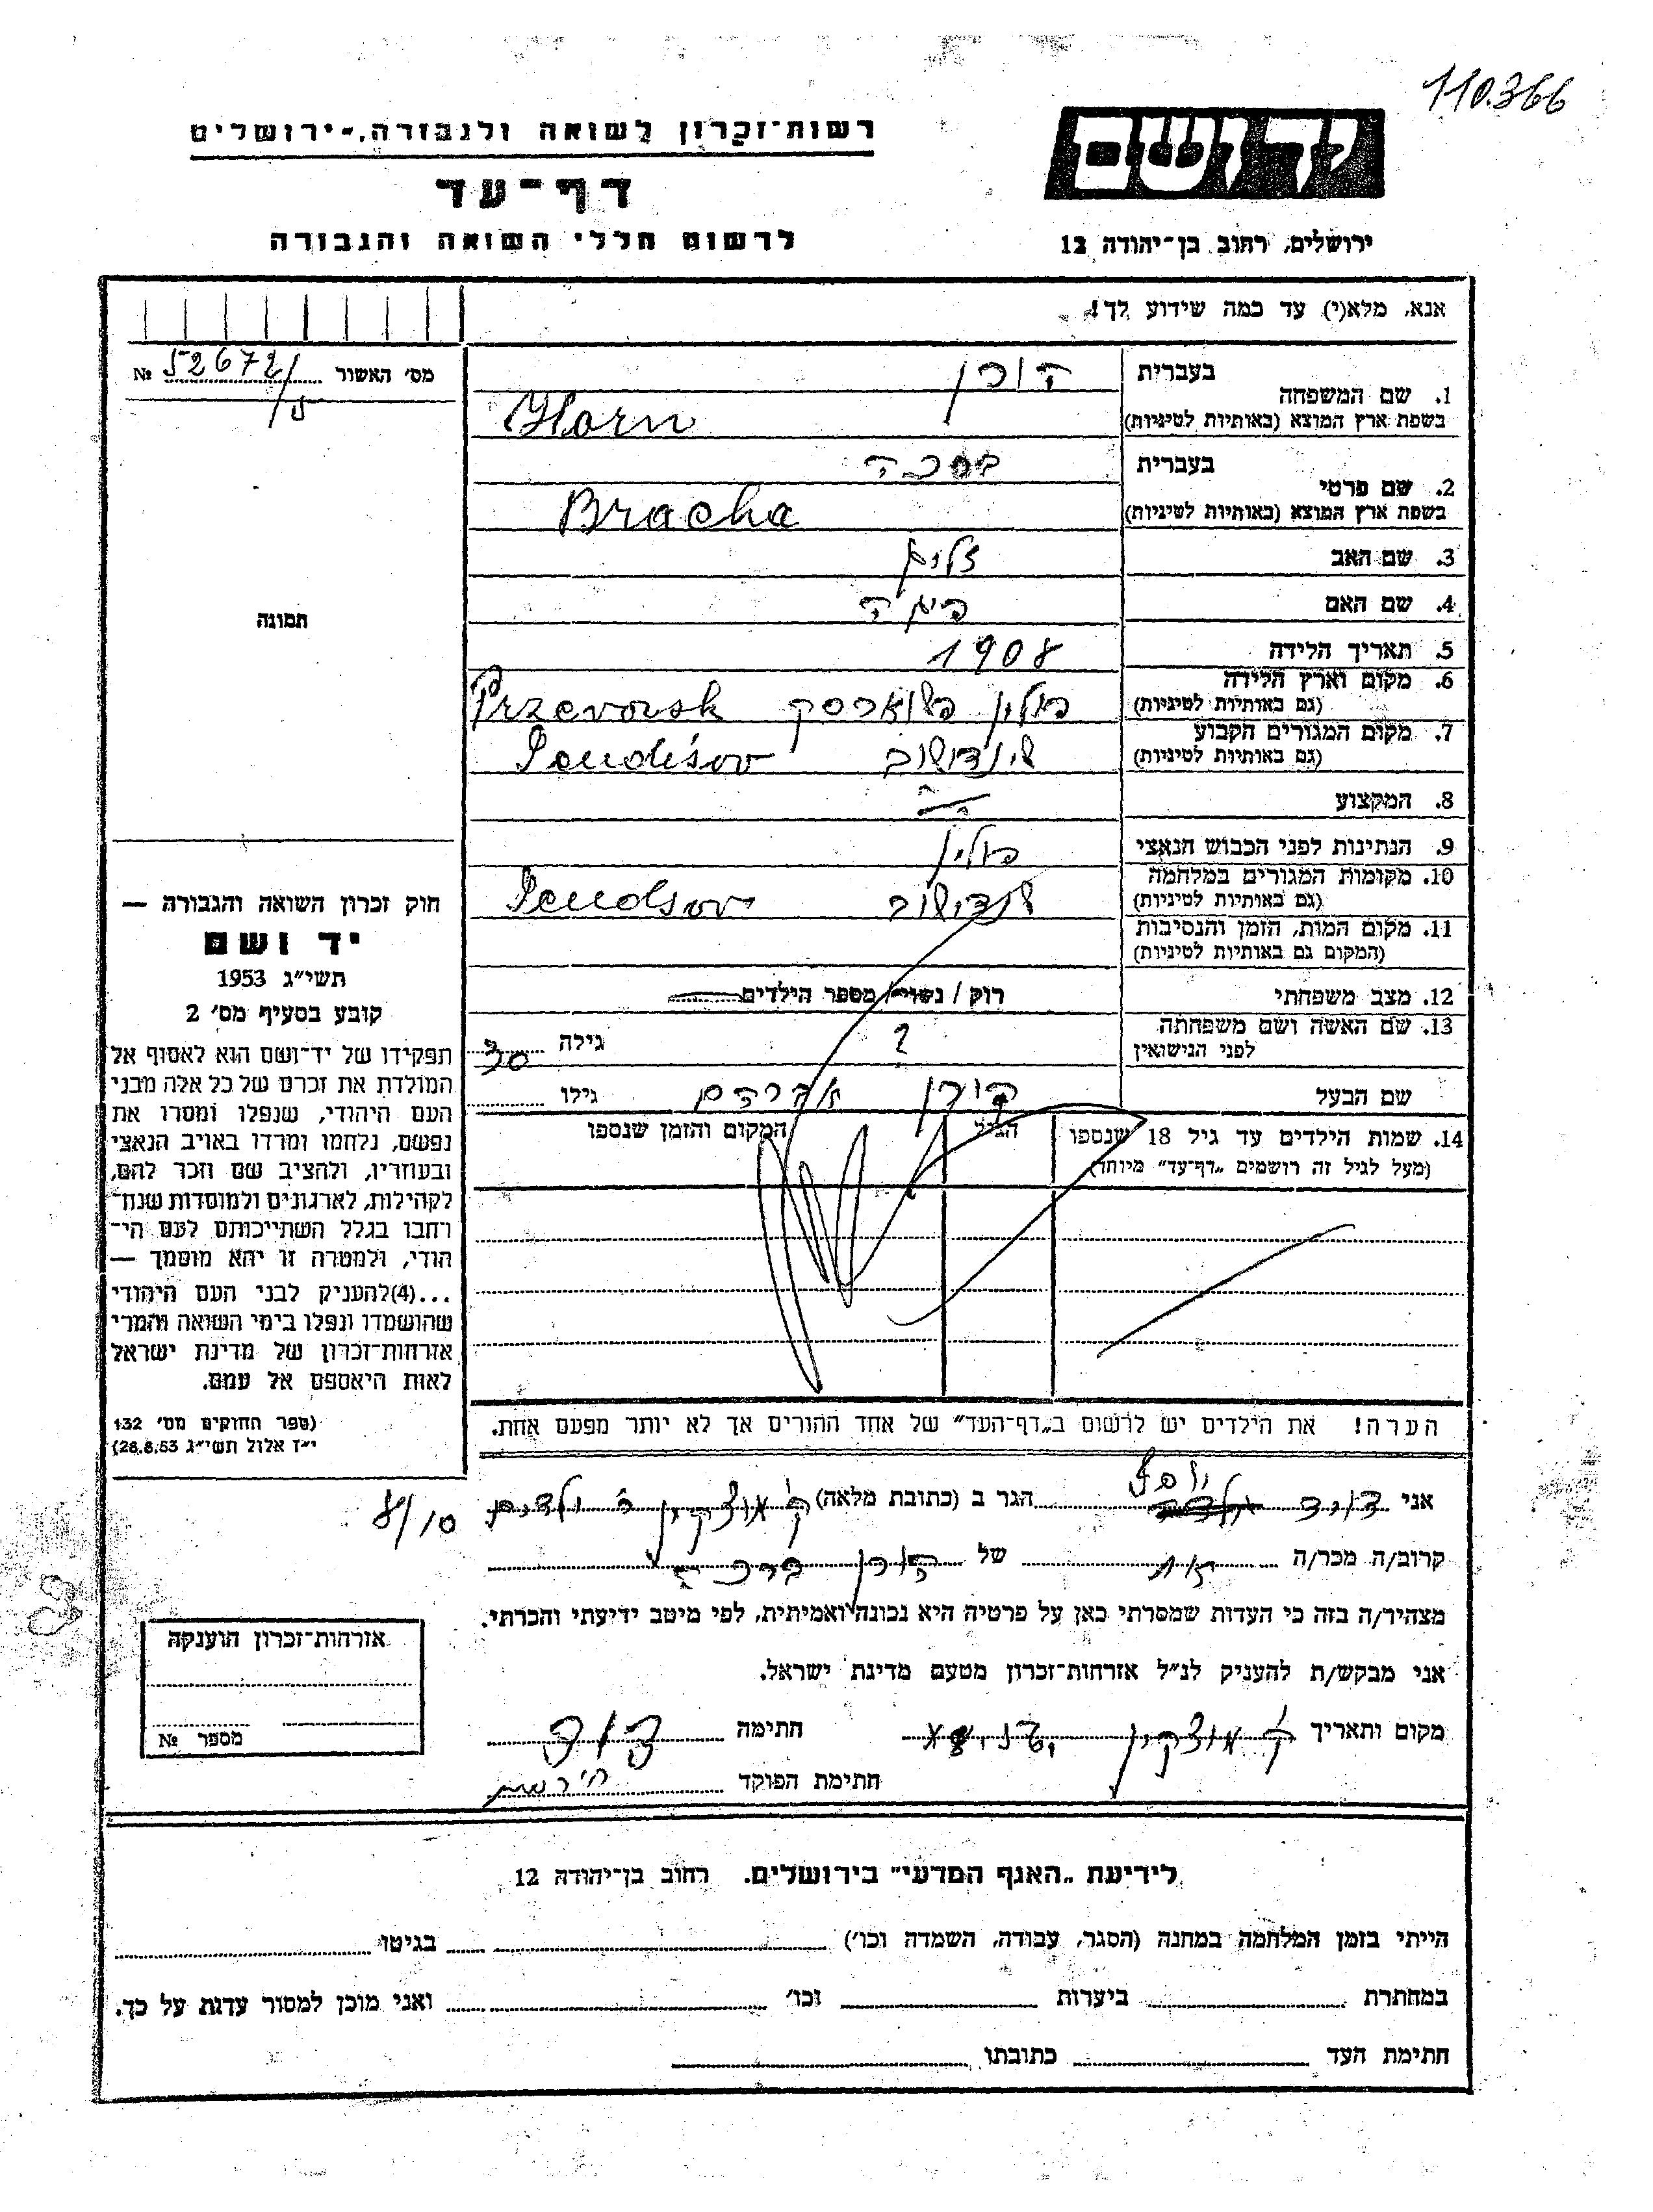 110.366
רשות־זכרון לשואה ולגבורה, ירושלים
דף־עד
לרשום חללי השואה והגבורה
ידושם
ירושלים, רחוב בן־יהודה 12
אנא, מלא(י) עד כמה שידוע לך!
מס' האשור 52672/ №
תמונה
1. שם המשפחה
בעברית הורן
בשפת ארץ המוצא (באותיות לטיניות) Horn
2. שם פרטי
בעברית ברכה
בשפת ארץ המוצא (באותיות לטיניות) Bracha
3. שם האב
4. שם האם
5. תאריך הלידה 1908
6. מקום וארץ הלידה
(גם באותיות לטיניות) פולין פשווארסק Przevorsk
7. מקום המגורים הקבוע
(גם באותיות לטיניות)
8. המקצוע
9. הנתינות לפני הכבוש הנאצי פולין
10. מקומות המגורים במלחמה
(גם באותיות לטיניות)
11. מקום המות, הזמן והנסיבות
(המקום גם באותיות לטיניות)
12. מצב משפחתי רוק / נשוי / מספר הילדים
13. שם האשה ושם משפחתה
לפני הנישואין ? גילה 30
שם הבעל הורן אברהם גילו
14. שמות הילדים עד גיל 18 שנספו הגיל המקום והזמן שנספו
(מעל לגיל זה רושמים „דף־עד" מיוחד)
הערה! את הילדים יש לרשום ב„דף־העד" של אחד ההורים אך לא יותר מפעם אחת.
חוק זכרון השואה והגבורה —
יד ושם
תשי"ג 1953
קובע בסעיף מס' 2
תפקידו של יד־ושם הוא לאסוף אל
המולדת את זכרם של כל אלה מבני
העם היהודי, שנפלו ומסרו את
נפשם, נלחמו ומרדו באויב הנאצי
ובעוזריו, ולהציב שם וזכר להם,
לקהילות, לארגונים ולמוסדות שנח־
רחבו בגלל השתייכותם לעם הי־
הודי, ולמטרה זו יהא מוסמך —
...(4)להעניק לבני העם היהודי
שהושמדו ונפלו בימי השואה והמרי
אזרחות־זכרון של מדינת ישראל
לאות היאספם אל עמם.
(ספר החוקים מס' 132
י"ז אלול תשי"ג 28.8.53)
אני דוד יוסף הגר ב (כתובת מלאה) ק' מוצקין
8/10
קרוב/ה מכר/ה של הורן ברכה
מצהיר/ה בזה כי העדות שמסרתי כאן על פרטיה היא נכונה ואמיתית, לפי מיטב ידיעתי והכרתי.
אני מבקש/ת להעניק לנ"ל אזרחות־זכרון מטעם מדינת ישראל.
מקום ותאריך ק' מוצקין חתימה דוד
חתימת הפוקד
אזרחות־זכרון הוענקה
מספר №
לידיעת „האגף המדעי" בירושלים. רחוב בן־יהודה 12
הייתי בזמן המלחמה במחנה (הסגר, עבודה, השמדה וכו') בגיטו
במחתרת ביערות וכו' ואני מוכן למסור עדות על כך.
חתימת העד כתובתו